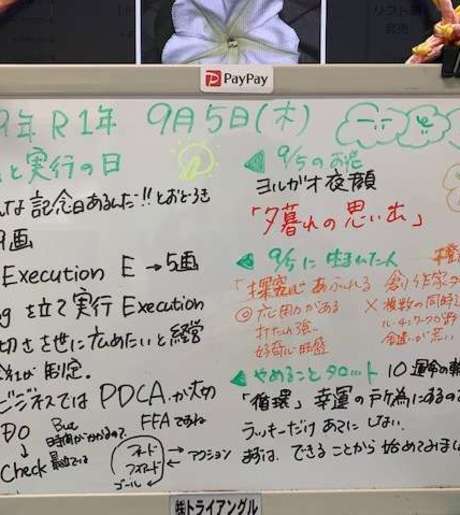 PayPay
9年 R1年 9月5日(木)
と実行の日
な記念日あるんだ!!とおどろき
9画
Execution E→5画
を立て実行 Execution
切さを世に広めたいと経営
会社が制定。
ビジネスではPDCAが大切
DO
But
時間がかかるので、
FFAですね
↓
Check
最近では
アクション
ゴール
◀ 9/5のお花
ヨルガオ夜顔
「夕暮れの思い出」
◀ 9/5に生まれた人
「探究心あふれる 創作家
◎ 応用力がある
打たれ強い
好奇心旺盛
×
◀ やめることタロット 10運命の輪
「循環」幸運の
ラッキーだけあてにしない
まずは、できることから始めてみまし
㈱トライアングル